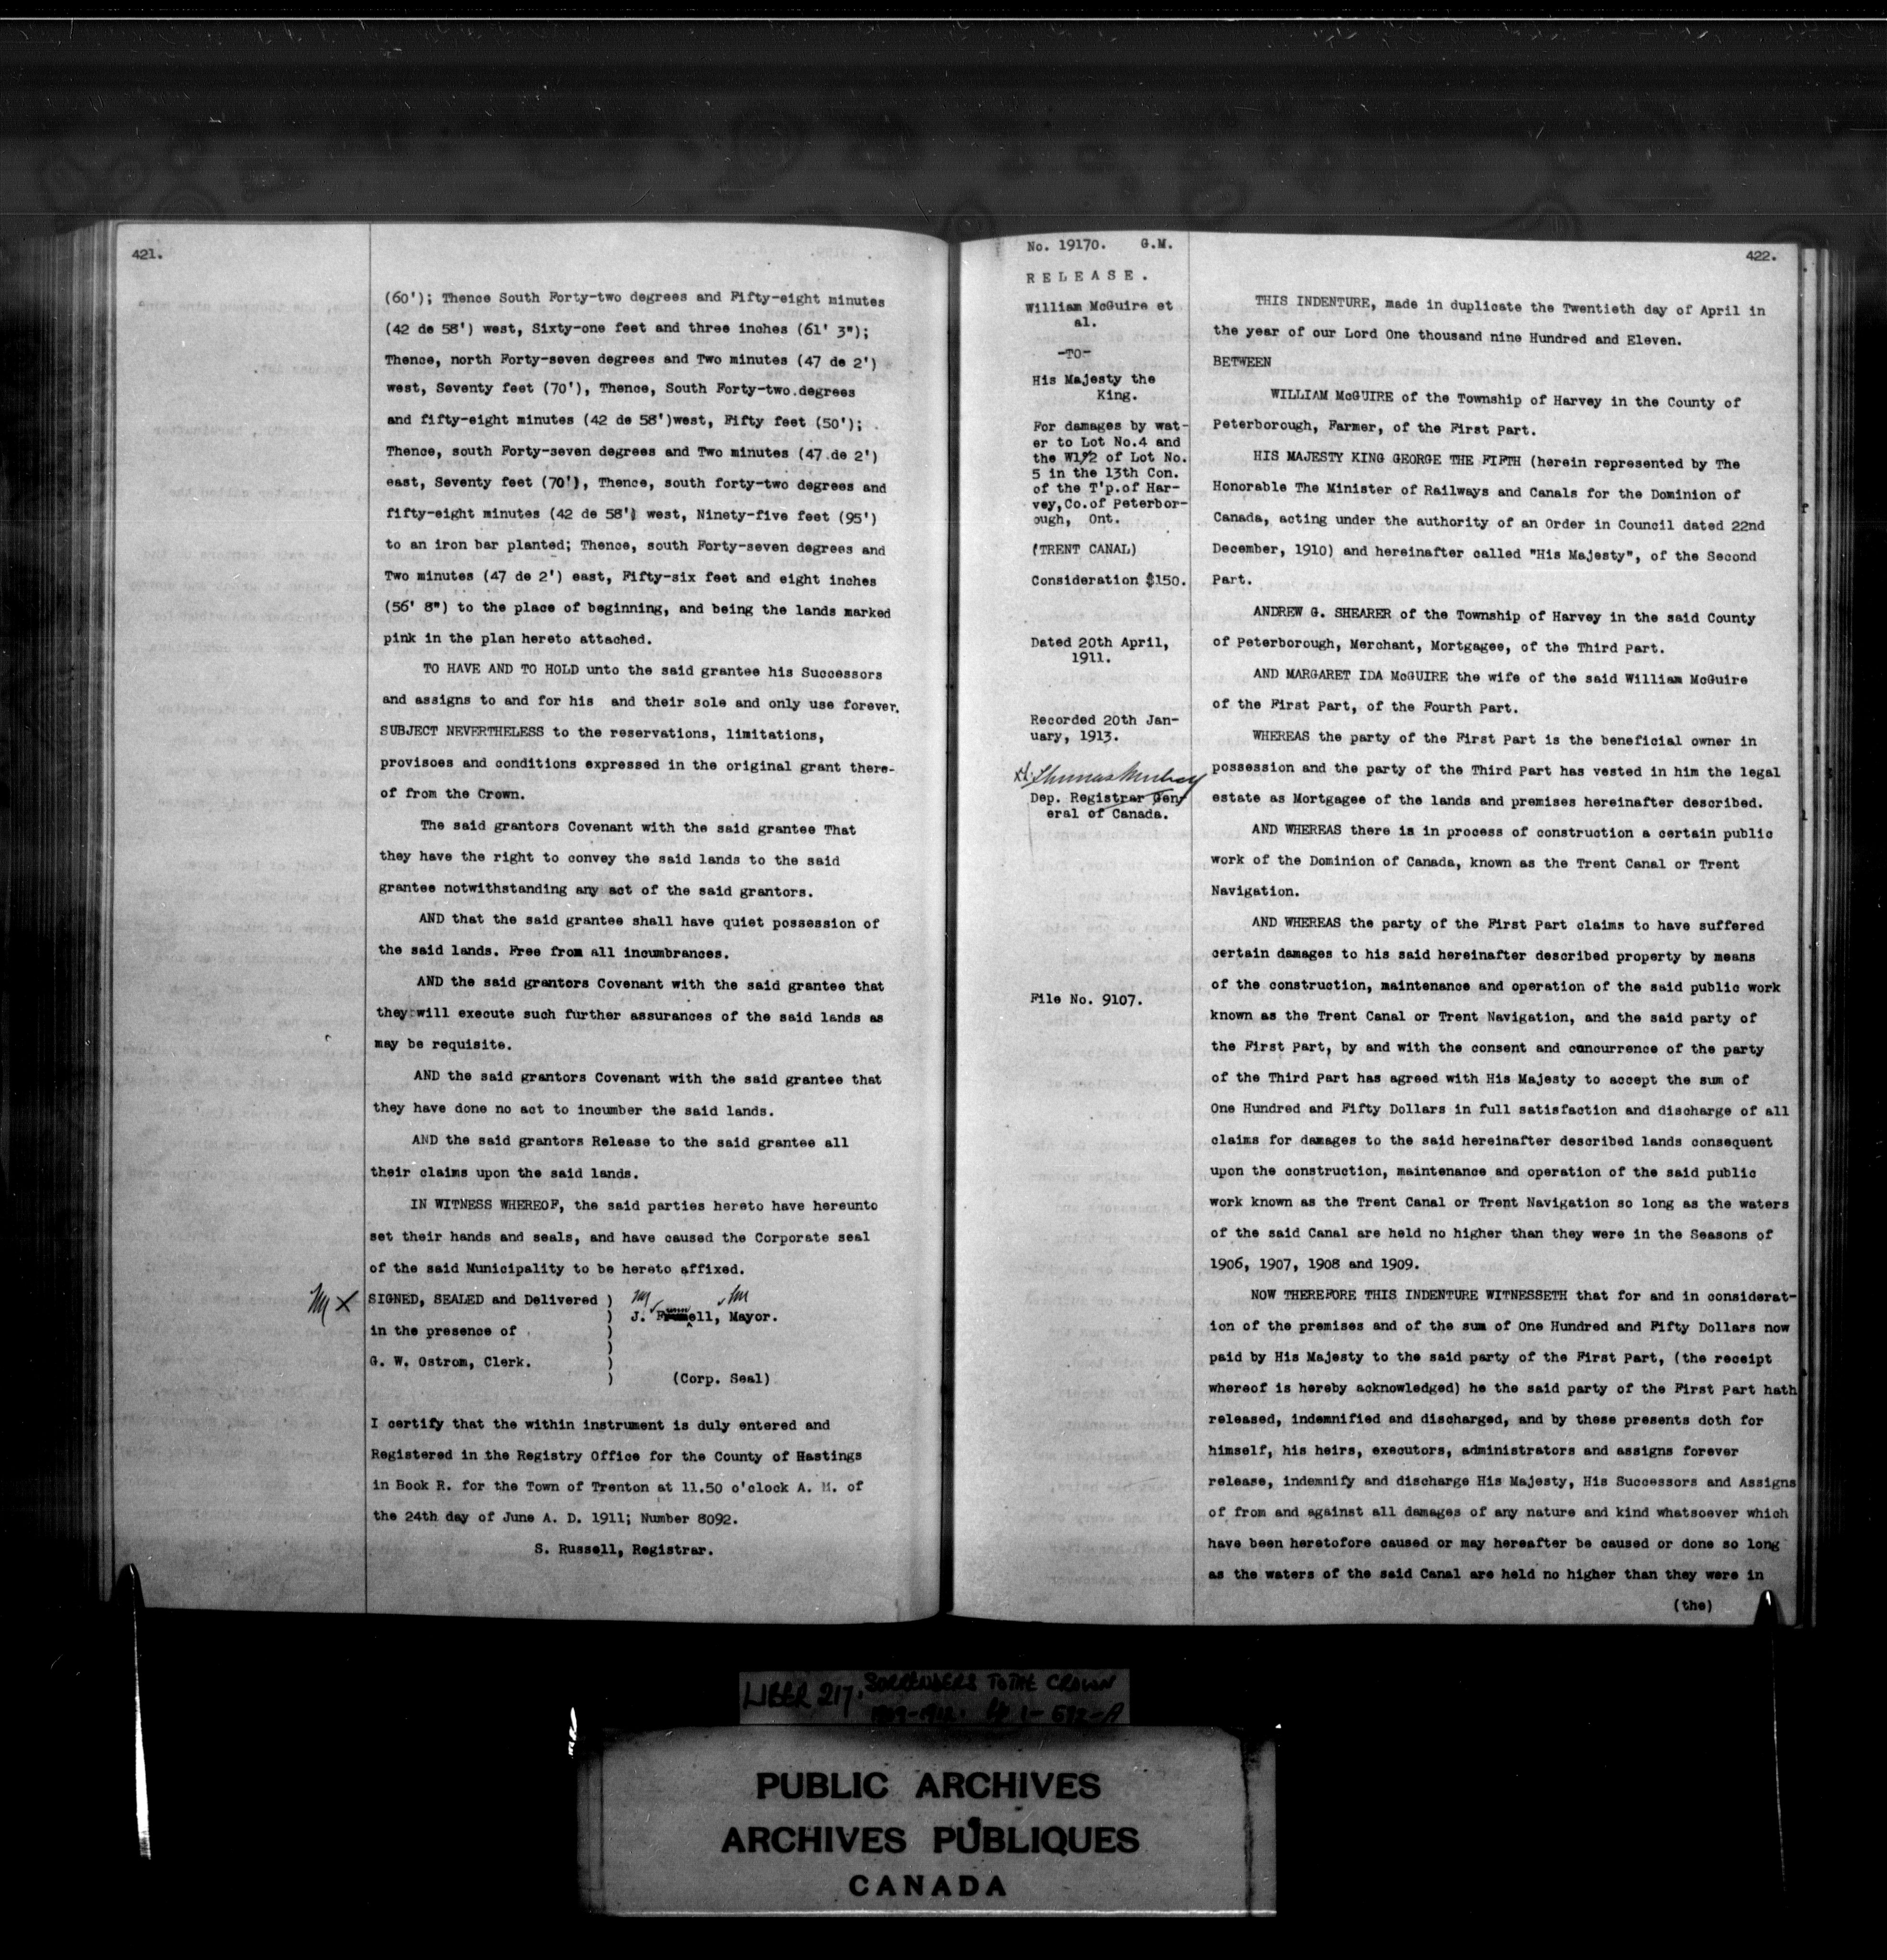 421.
(60'); Thence South Forty-two degrees and Fifty-eight minutes
(42 de 58') west, Sixty-one feet and three inches (61' 3");
Thence, north Forty-seven degrees and Two minutes (47 de 2')
west, Seventy feet (70'), Thence, South Forty-two.degrees
and fifty-eight minutes (42 de 58')west, Fifty feet (50');
Thence, south Forty-seven degrees and Two minutes (47.de 2')
east, Seventy feet (70'), Thence, south forty-two degrees and
fifty-eight minutes (42 de 58') west, Ninety-five feet (95')
to an iron bar planted; Thence, south Forty-seven degrees and
Two minutes (47 de 2') east, Fifty-six feet and eight inches
(56' 8") to the place of beginning, and being the lands marked
pink in the plan hereto attached.
TO HAVE AND TO HOLD unto the said grantee his Successors
and assigns to and for his and their sole and only use forever.
SUBJECT NEVERTHELESS to the reservations, limitations,
provisoes and conditions expressed in the original grant there-
of from the Crown.
The said grantors Covenant with the said grantee That
they have the right to convey the said lands to the said
grantee notwithstanding any act of the said grantors.
AND that the said grantee shall have quiet possession of
the said lands. Free from all incumbrances.
AND the said grantors Covenant with the said grantee that
they will execute such further assurances of the said lands as
may be requisite.
AND the said grantors Covenant with the said grantee that
they have done no act to incumber the said lands.
AND the said grantors Release to the said grantee all
their claims upon the said lands.
IN WITNESS WHEREOF, the said parties hereto have hereunto
set their hands and seals, and have caused the Corporate seal
of the said Municipality to be hereto affixed.
SIGNED, SEALED and Delivered )
) J. Mayor.
in the presence of )
)
G. W. Ostrom, Clerk. )
) (Corp. Seal)
I certify that the within instrument is duly entered and
Registered in the Registry Office for the County of Hastings
in Book R. for the Town of Trenton at 11.50 o'clock A. M. of
the 24th day of June A. D. 1911; Number 8092.
S. Russell, Registrar.
No. 19170. G.M.
RELEASE.
William McGuire et
al.
-TO-
His Majesty the
King.
For damages by wat-
er to Lot No.4 and
the W1/2 of Lot No.
5 in the 13th Con.
of the T'p.of Har-
vey,Co.of Peterbor-
ough, Ont.
(TRENT CANAL)
Consideration $150.
Dated 20th April,
1911.
Recorded 20th Jan-
uary, 1913.
Dep. Registrar Gen-
eral of Canada.
File No. 9107.
422.
THIS INDENTURE, made in duplicate the Twentieth day of April in
the year of our Lord One thousand nine Hundred and Eleven.
BETWEEN
WILLIAM McGUIRE of the Township of Harvey in the County of
Peterborough, Farmer, of the First Part.
HIS MAJESTY KING GEORGE THE FIFTH (herein represented by The
Honorable The Minister of Railways and Canals for the Dominion of
Canada, acting under the authority of an Order in Council dated 22nd
December, 1910) and hereinafter called "His Majesty", of the Second
Part.
ANDREW G. SHEARER of the Township of Harvey in the said County
of Peterborough, Merchant, Mortgagee, of the Third Part.
AND MARGARET IDA McGUIRE the wife of the said William McGuire
of the First Part, of the Fourth Part.
WHEREAS the party of the First Part is the beneficial owner in
possession and the party of the Third Part has vested in him the legal
estate as Mortgagee of the lands and premises hereinafter described.
AND WHEREAS there is in process of construction a certain public
work of the Dominion of Canada, known as the Trent Canal or Trent
Navigation.
AND WHEREAS the party of the First Part claims to have suffered
certain damages to his said hereinafter described property by means
of the construction, maintenance and operation of the said public work
known as the Trent Canal or Trent Navigation, and the said party of
the First Part, by and with the consent and concurrence of the party
of the Third Part has agreed with His Majesty to accept the sum of
One Hundred and Fifty Dollars in full satisfaction and discharge of all
claims for damages to the said hereinafter described lands consequent
upon the construction, maintenance and operation of the said public
work known as the Trent Canal or Trent Navigation so long as the waters
of the said Canal are held no higher than they were in the Seasons of
1906, 1907, 1908 and 1909.
NOW THEREFORE THIS INDENTURE WITNESSETH that for and in considerat-
ion of the premises and of the sum of One Hundred and Fifty Dollars now
paid by His Majesty to the said party of the First Part, (the receipt
whereof is hereby acknowledged) he the said party of the First Part hath
released, indemnified and discharged, and by these presents doth for
himself, his heirs, executors, administrators and assigns forever
release, indemnify and discharge His Majesty, His Successors and Assigns
of from and against all damages of any nature and kind whatsoever which
have been heretofore caused or may hereafter be caused or done so long
as the waters of the said Canal are held no higher than they were in
(the)
LIBER 217. SURRENDERS TO THE CROWN
PUBLIC ARCHIVES
ARCHIVES PUBLIQUES
CANADA